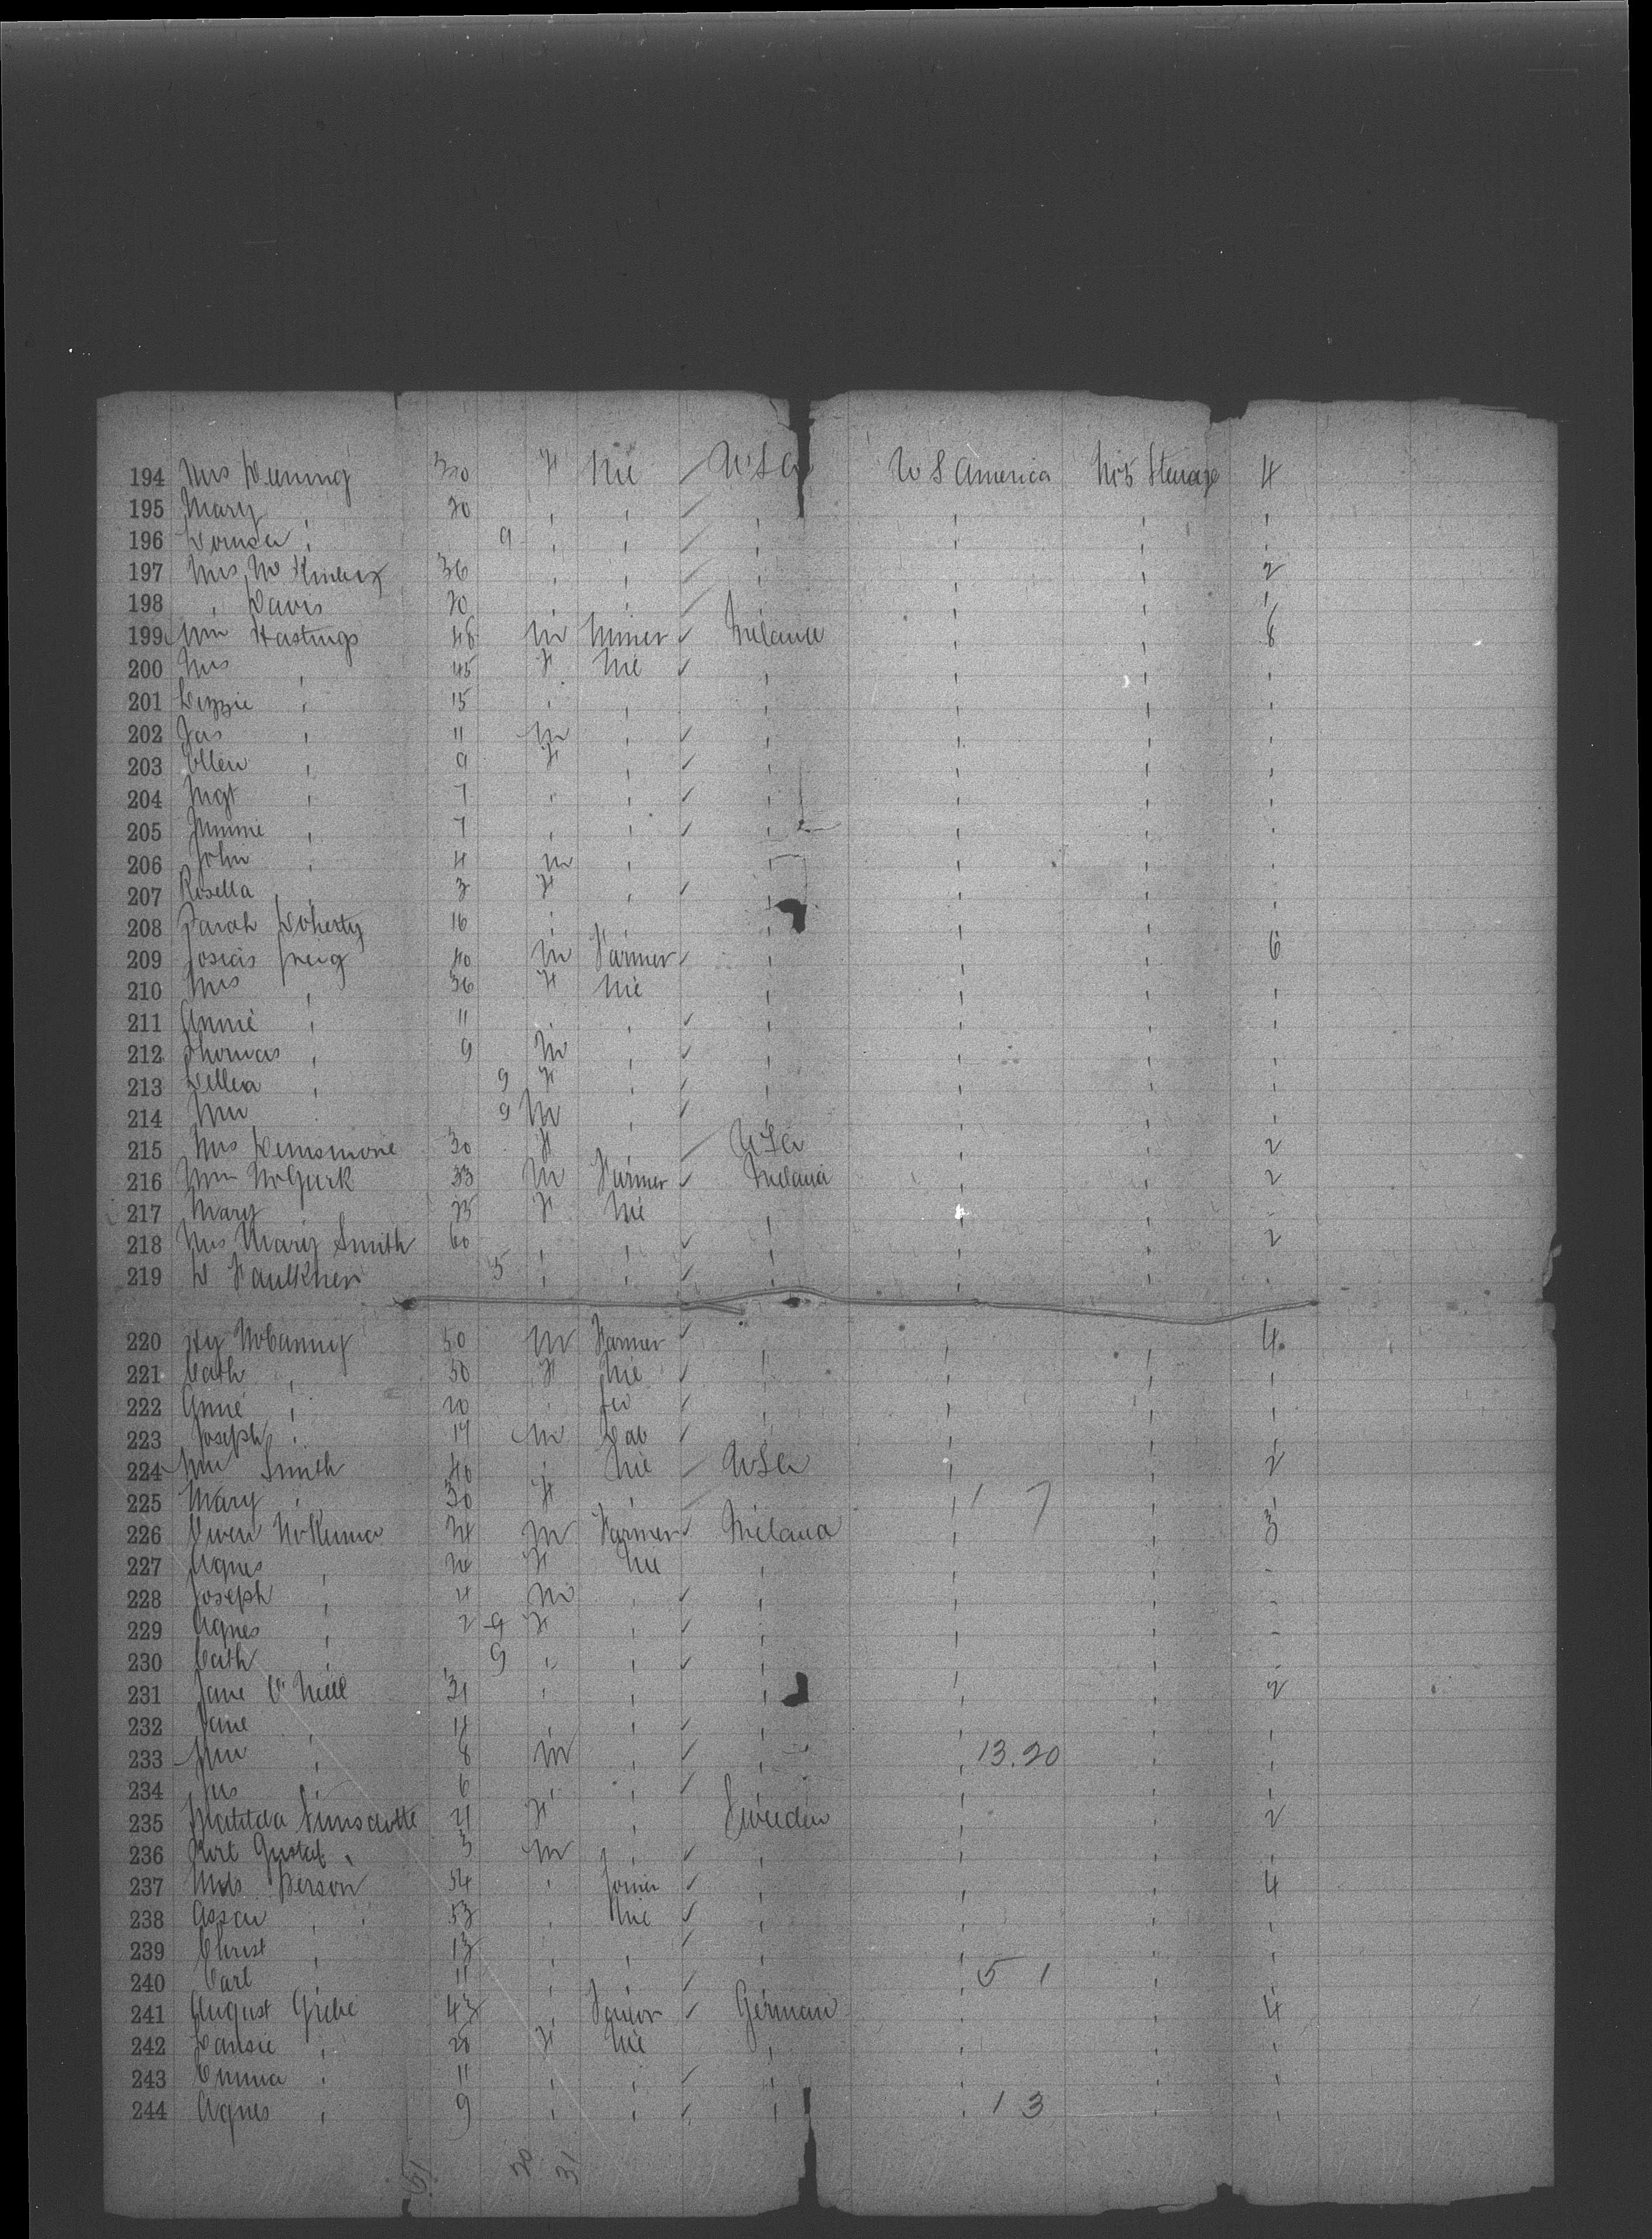 194 Mrs Deening 30 F Nil / USA U S America No 5 Steerage 4
195 Mary " 20 " " / " " " "
196 Louisa " 9 " " / " " " "
197 Mrs 36 " " / " " " 2
198 " Davis 20 " " / " " " "
199 Wm Hastings 48 M Miner ✓ Ireland " " 8
200 Mrs " 45 F Nil ✓ " " " "
201 Lizzie " 15 " " " " " "
202 Jas " 11 M " ✓ " " " "
203 Ellen " 9 F " ✓ " " " "
204 Mgt " 7 " " ✓ " " " "
205 Minnie " 7 " " ✓ " " " "
206 John " 4 M " " " " "
207 Rosella " 3 F " ✓ " " " "
208 Sarah Doherty 16 " " " " " "
209 Josias Greig 40 M Farmer ✓ " " " 6
210 Mrs " 36 F Nil " " " "
211 Annie " 11 " " ✓ " " " "
212 Thomas " 9 M " ✓ " " " "
213 " 9 F " ✓ " " " "
214 Wm " 9 M " ✓ " " " "
215 Mrs Densmore 30 F " / USA " " 2
216 Wm McGurk 33 M Farmer ✓ Ireland " " 2
217 Mary " 25 F Nil " " " "
218 Mrs Mary Smith 60 " " ✓ " " " 2
219 D Faulkner 5 " " ✓ " " " "
220 Hy McCanny 50 M Farmer ✓ " " " 4
221 Cath " 50 F Nil ✓ " " " "
222 Annie " 20 " ✓ " " " "
223 Joseph " 19 M Lab ✓ " " " "
224 Wm Smith 40 " Nil / USA " " 2
225 Mary " 30 F " / " " 1 7 " "
226 Owen McKenna 24 M Farmer ✓ Ireland " " 3
227 Agnes " 24 F Nil " " " "
228 Joseph " 4 M " ✓ " " " "
229 Agnes " 2 9 F " ✓ " " " "
230 Cath " 9 " " ✓ " " " "
231 Jane O'Neill 31 " " " " " 2
232 Jane " 11 " " ✓ " " " "
233 Wm " 8 M " ✓ " " 13.20 " "
234 Jas " 6 " " ✓ " " " "
235 Matilda 21 F " Sweden " " 2
236 Gustaf " 3 M " ✓ " " " "
237 Mds Person 54 " Joiner ✓ " " " 4
238 " 53 " Nil ✓ " " " "
239 Christ " 13 " " ✓ " " " "
240 Carl " 11 " " ✓ " " 5 1 " "
241 August 43 " ✓ German " " 4
242 " 28 F Nil " " " "
243 Emma " 11 " " ✓ " " " "
244 Agnes " 9 " " ✓ " " 1 3 " "
51 20 31